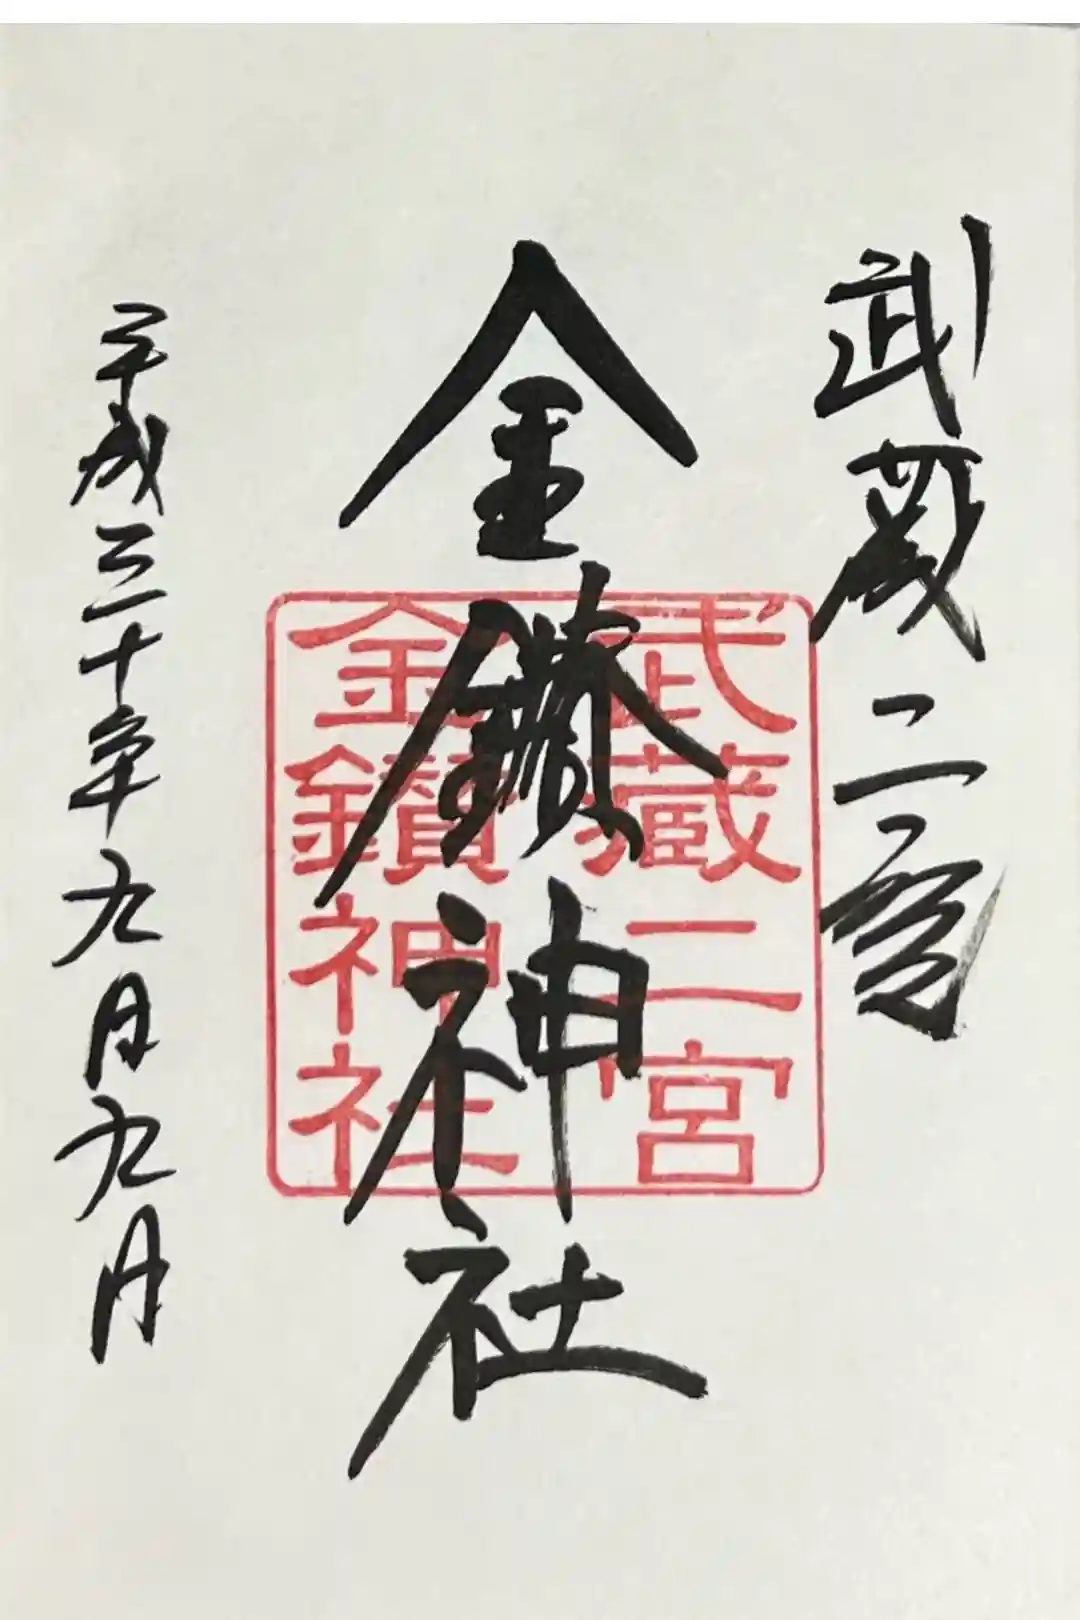 武蔵二宮
金鑚神社
平成三十年九月九日
武藏二宮
金鑽神社